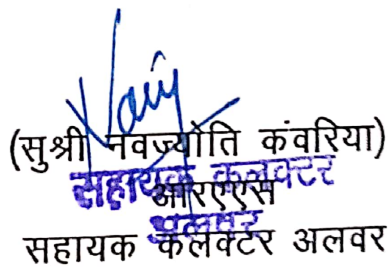 (सुश्री नवज्योति कंवरिया)
सहायक कलक्टर
आरएएस
अलवर
सहायक कलेक्टर अलवर